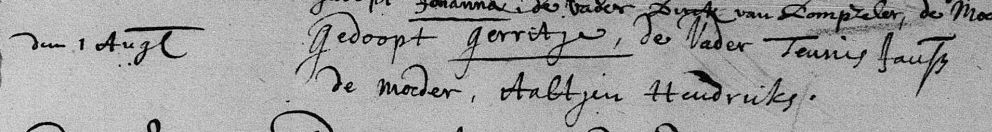 Johanna, de vader Dirck van Lompzeler, de Moe
den 1 Augt Gedoopt Gerritje, de Vader Teunis Jansz
de moeder, Aaltjen Hendriks.